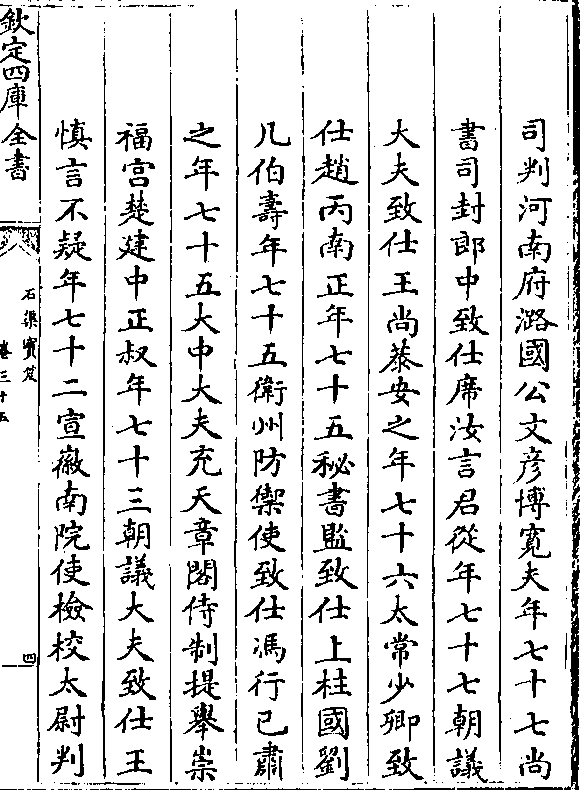 司判河南府潞國公文彦博寛夫年七十七尚
書司封郎中致仕席汝言君從年七十七朝議
大夫致仕王尚恭安之年七十六太常少卿致
仕趙丙南正年七十五秘書監致仕上柱國劉
几伯壽年七十五衛州防禦使致仕馮行已肅
之年七十五大中大夫充天章閣侍制提舉崇
福宫楚建中正叔年七十三朝議大夫致仕王
慎言不疑年七十二宣徽南院使檢校太尉判
欽定四庫全書
石渠寶笈
卷三十五
四